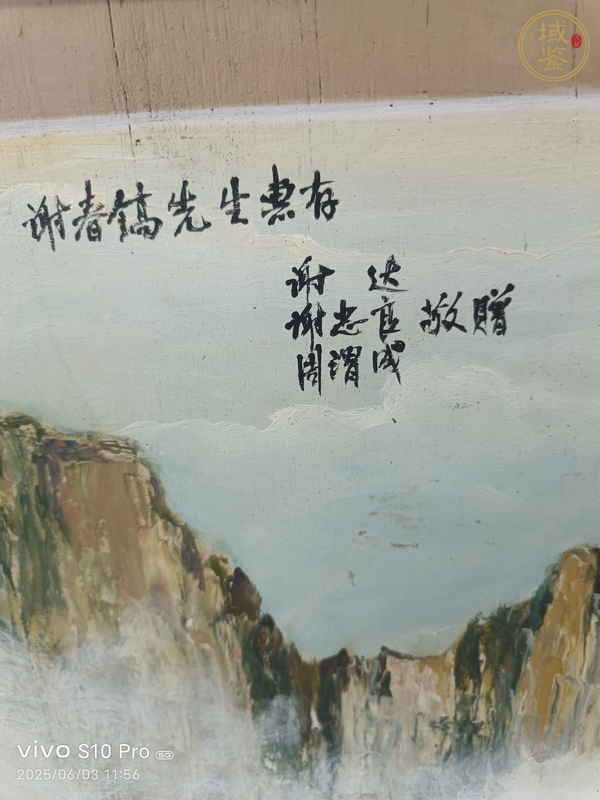 域鉴
谢春镐先生惠存
谢 达
谢忠良 敬赠
周渭成
vivo S10 Pro 5G
2025/06/03 11:56